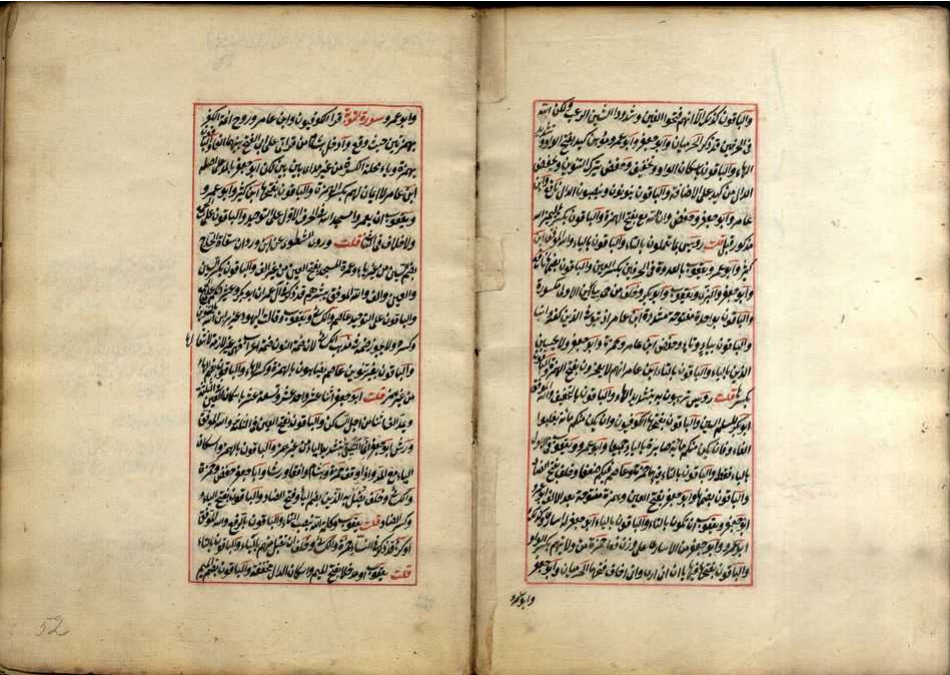 والباقون كذلك الا انهم فتحوا الغين وشددوا الشين الرعب ولكن الله
فى الحرفين قد ذكر الحرميان وابو جعفر وابو عمرو موهن كيد بفتح الواو وتشديد
الهاء والباقون باسكان الواو وتخفيف وحفص يترك التنوين ويخفض
الدال من كيد على الاضافة والباقون ينونون وينصبون الدال نافع وابن
عامر وابو جعفر وحفص وان الله مع بفتح الهمزة والباقون بكسرها ليميز الله
مذكور قبل قلت رويس بما تعملون بالتاء والباقون بالياء والله الموفق ابن
كثير وابو عمرو ويعقوب بالعدوة فى الحرفين بكسر العين والباقون بضمها نافع
وابو جعفر والبزى ويعقوب وابو بكر وخلف من حيى بيائين الاولى مكسورة
والباقون بواحدة مفتوحة مشددة ابن عامر اذ تتوفى الذين كفروا بتائين
والباقون بياء وتاء وحفص وابن عامر وحمزة وابو جعفر ولا يحسبن
الذين بالياء والباقون بالتاء ابن عامر انهم لا يعجزون بفتح الهمزة والباقون
بكسرها قلت رويس ترهبون به بتشديد الهاء والباقون بالتخفيف والله الموفق
ابو بكر للسلم بكسر السين والباقون بفتحها الكوفيون وان يكن منكم مائة يغلبوا
الفا وفان يكن منكم مائة صابرة بالياء فيهما وابو عمرو ويعقوب فى الاول
بالياء فقط والباقون بالتاء فيهما حمزة وعاصم فيكم ضعفا وخلف بفتح الضاد
والباقون بضمها وابو جعفر بفتح العين وبهمزة مفتوحة بعد الالف ابو عمرو
وابو جعفر ويعقوب ان تكون بالتاء والباقون بالياء ابو جعفر له اسارى وكذلك
ابو عمرو وابو جعفر من الاسارى على وزن فعالى حمزة من ولايتهم بكسر الواو
والباقون بفتحها فيها ياان انى ارى وانى اخاف فتحها الحرميان وابو جعفر
وابو عمرو
وابو عمرو سورة التوبة قرا الكوفيون وابن عامر وروح ائمة الكفر
بهمزتين حيث وقع وادخل هشام من قراءتى على ابى الفتح بينهما الفا والباقون
بهمزة وياء مختلسة الكسرة من غير مد الا ابن عامر لا ايمان لهم بكسر الهمزة والباقون بفتحها ابن كثير وابو عمرو
ويعقوب ان يعمروا مسجد الله الحرف الاول على التوحيد والباقون على الجمع
ولا خلاف فى الثانى قلت وروى الشطوى عن ابن وردان سقاة الحاج
بضم السين من غير ياء وعمرة المسجد بفتح العين من غير الف والباقون بكسر السين
والعين والف والله الموفق يبشرهم قد ذكر فى ال عمران ابو بكر وعشيراتكم على الجمع
والباقون على التوحيد عاصم والكسائى ويعقوب وقالت اليهود عزير ابن الله بالتنوين
وكسره ولا يجوز ضمه فى مذهب الكسائى لان ضمة النون ضمة اعراب فهى غير لازمة لانتقالها
والباقون بغير تنوين عاصم يضاهئون بالهمزة وكسر الهاء والباقون بضم الهاء
من غير همز قلت ابو جعفر اثنا عشر واحد عشر وتسعة عشر باسكان العين فى الثلاثة
ويمد الف اثنا من اجل الساكن والباقون بفتح العين والله الموفق
ورش وابو جعفر انما النسى بتشديد الياء من غير همز والباقون بالهمز واسكان
الياء مع المد واذا وقف حمزة وهشام وافقا ورشا وابا جعفر حفص وحمزة
والكسائى وخلف يضل به الذين بضم الياء وفتح الضاد والباقون بفتح الياء
وكسر الضاد قلت يعقوب وكلمة الله بنصب التاء والباقون بالرفع والله الموفق
او كرها قد ذكر فى النساء حمزة والكسائى وخلف ان تقبل منهم بالياء والباقون بالتاء
قلت يعقوب او مدخلا بفتح الميم واسكان الدال مخففة والباقون بضم الميم
52